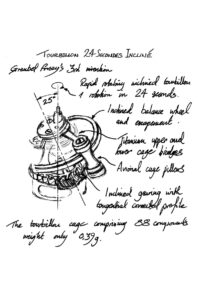 TOURBILLON 24-SECONDES INCLINÉ
Greubel Forsey's 3rd invention
Rapid rotating inclined tourbillon
1 rotation in 24 seconds.
25°
Inclined balance wheel
and escapement.
Titanium upper and
lower cage bridges
Avional cage pillars
Inclined gearing with
tangential corrected profile
The tourbillon cage comprising 88 components
weighs only 0.39g.